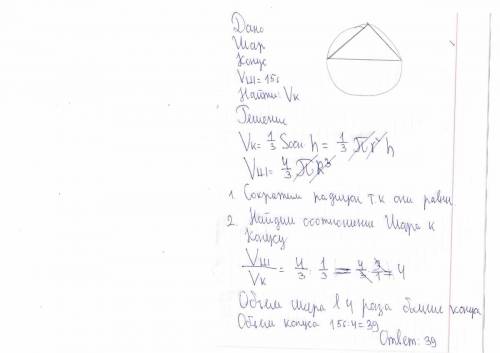 Дано
Шар
Конус
Vш=156
Найти: Vк
Решение
Vк= 1/3 Sосн h = 1/3 πr² h
Vш= 4/3 πR³
1. Сократим радиусы т.к они равны
2. Найдём соотношение Шара к
Конусу
Vш/Vк = 4/3 : 1/3 = 4/3 · 3/1 = 4
Объем шара в 4 раза больше конуса
Объем конуса 156:4=39
Ответ: 39